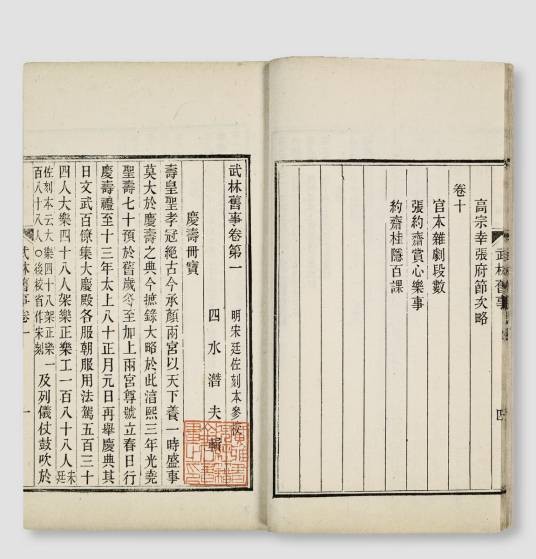 武林舊事
四
高宗幸張府節次略
卷十
官本雜劇段數
張約齋賞心樂事
約齋桂隱百課
武林舊事卷第一
明宋廷佐刻本參校
四水潛夫輯
慶壽冊寶
壽皇聖孝冠絕古今承顏兩宮以天下養一時盛事
莫大於慶壽之典今摭錄大略於此湻熙三年光堯
聖壽七十預於舊歲冬至加上兩宮尊號立春日行
慶壽禮至十三年太上八十正月元日再舉慶典其
日文武百僚集大慶殿各服朝服用法駕五百三十
四人大樂四十八人架樂正樂工一百八十八人宋廷
佐刻本云大樂四十八架樂正一百八十八人○後校省作宋刻及列儀仗鼓吹於
武林舊事卷一
一